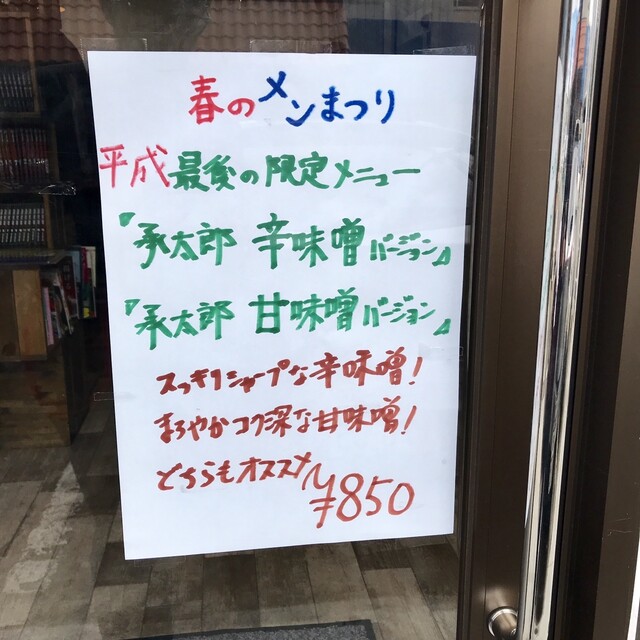 春のメンまつり
平成最後の限定メニュー
『承太郎 辛味噌バージョン』
『承太郎 甘味噌バージョン』
スッキリシャープな辛味噌!
まろやかコク深な甘味噌!
どちらもオススメ〜
¥850